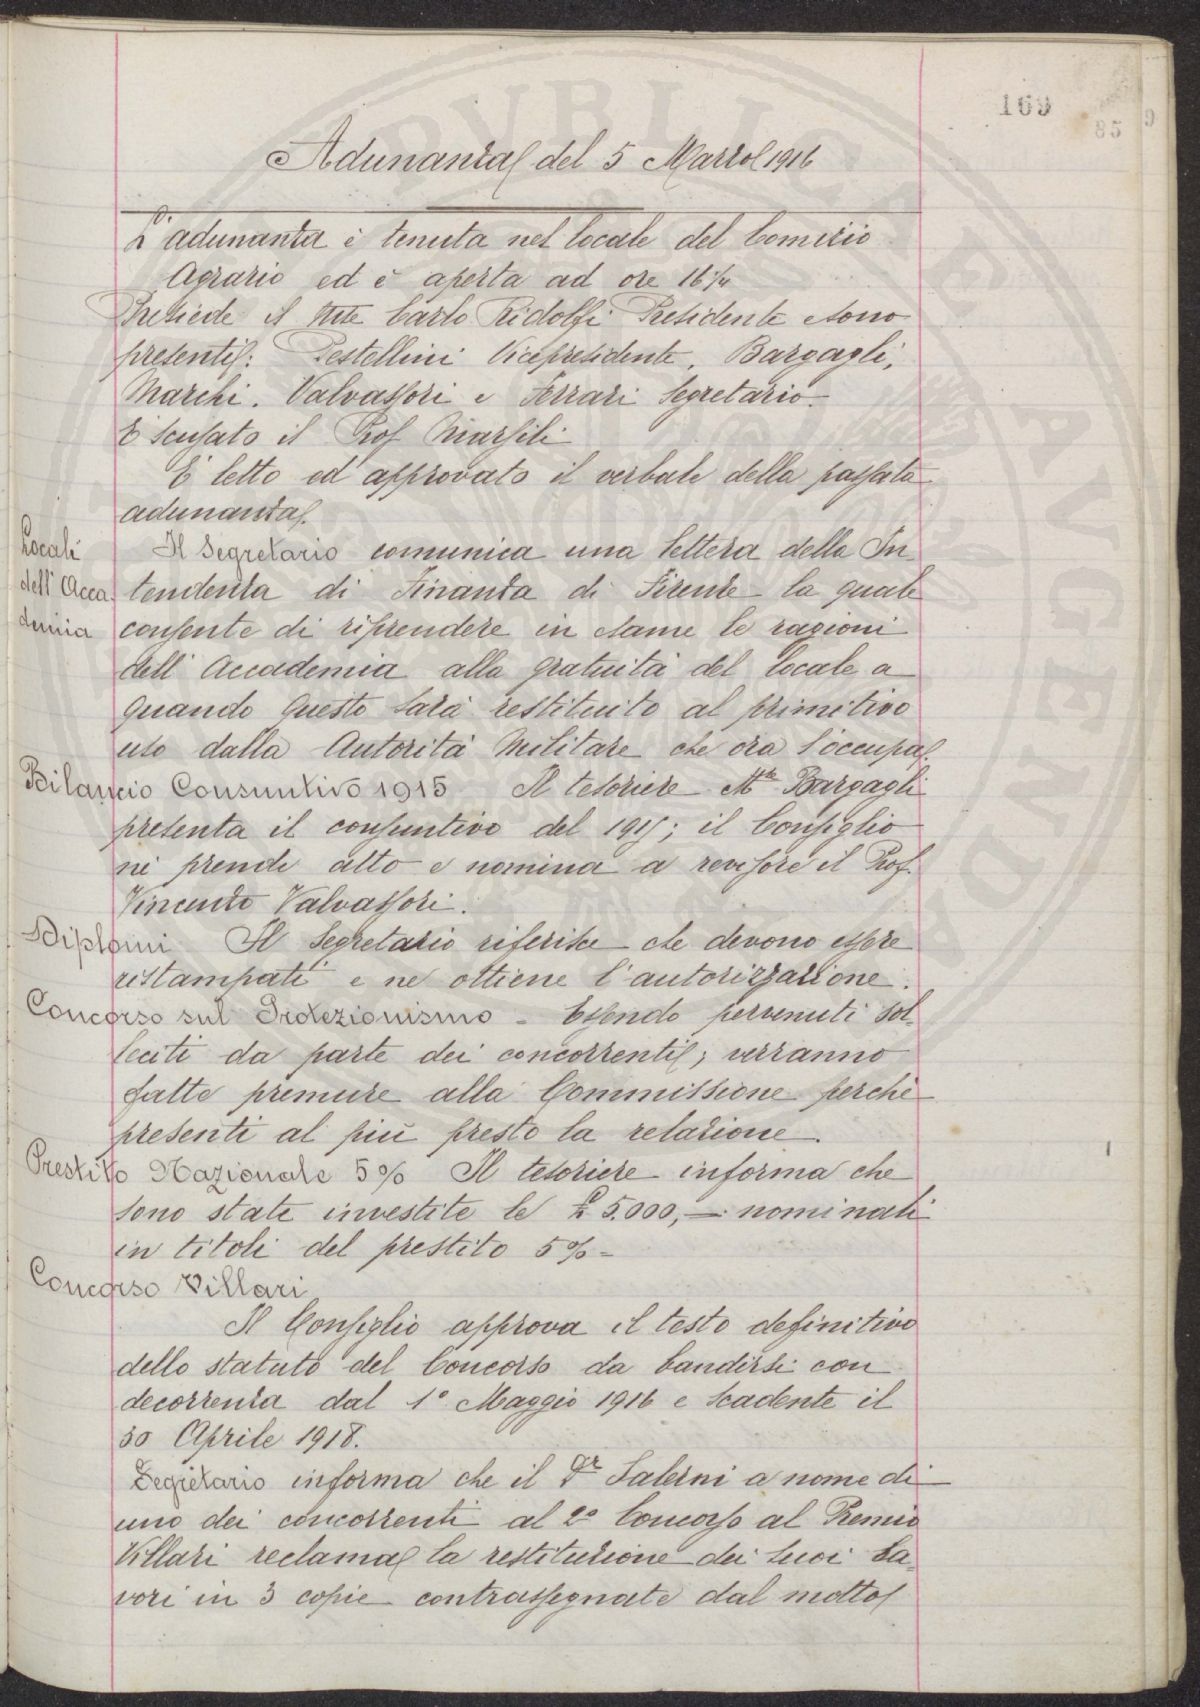 169
85
9
Adunanza del 5 Marzo 1916
L'adunanza è tenuta nel locale del Comizio
Agrario ed è aperta ad ore 16 1/4
Presiede il Mse Carlo Ridolfi Presidente e sono
presenti: Pestellini Vicepresidente, Bargagli,
Marchi. Valvassori e Ferrari Segretario.
È scusato il Prof Marsili
È letto ed approvato il verbale della passata
adunanza.
Locali
dell'Acca
demia
Il Segretario comunica una lettera della In-
tendenza di Finanza di Firenze la quale
consente di riprendere in esame le ragioni
dell'Accademia alla gratuità del locale a
quando questo sarà restituito al primitivo
uso dalla Autorità Militare che ora l'occupa.
Bilancio Consuntivo 1915 Il tesoriere Mse Bargagli
presenta il consuntivo del 1915; il Consiglio
ne prende atto e nomina a revisore il Prof.
Vincenzo Valvassori.
Diplomi Il Segretario riferisce che devono essere
ristampati e ne ottiene l'autorizzazione.
Concorso sul Protezionismo - Essendo pervenuti sol-
leciti da parte dei concorrenti; verranno
fatte premure alla Commissione perchè
presenti al più presto la relazione.
Prestito Nazionale 5% Il tesoriere informa che
sono state investite le £ 5.000,— nominali
in titoli del prestito 5% -
Concorso Villari
Il Consiglio approva il testo definitivo
dello statuto del Concorso da bandirsi con
decorrenza dal 1° Maggio 1916 e scadente il
30 Aprile 1918.
Segretario informa che il Dr Salerni a nome di
uno dei concorrenti al 2° Concorso al Premio
Villari reclama la restituzione dei suoi la-
vori in 3 copie contrassegnate dal motto